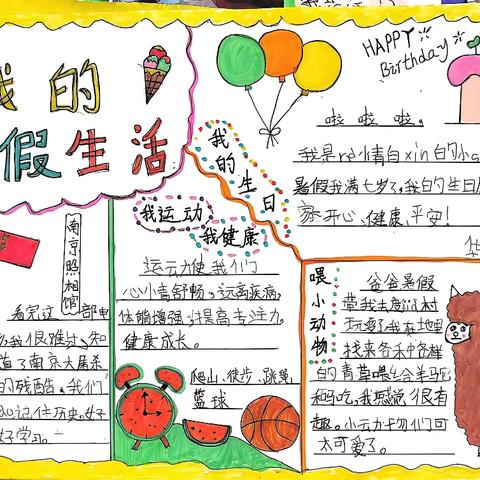 我的
假生活
HAPPY
Birthday
啦 啦 啦。
我是
暑假我满七岁了,我的生日
开心、健康、平安!
我的生日
我运动
我健康
运动使我们
心情舒畅、远离疾病,
体能增强,提高专注力,
健康成长。
爬山、徒步、跳绳、
篮球
南京照相馆
看完这 部电
我很难过,知
道了南京大屠杀
的残酷,我们
记住历史,好
好学习。
喂小动物
爸爸暑假
带我去 村
玩 了,我在地里
找来各种各样
的青草喂给羊驼
和吃,我感觉很有
趣。小动物们可
太可爱了。